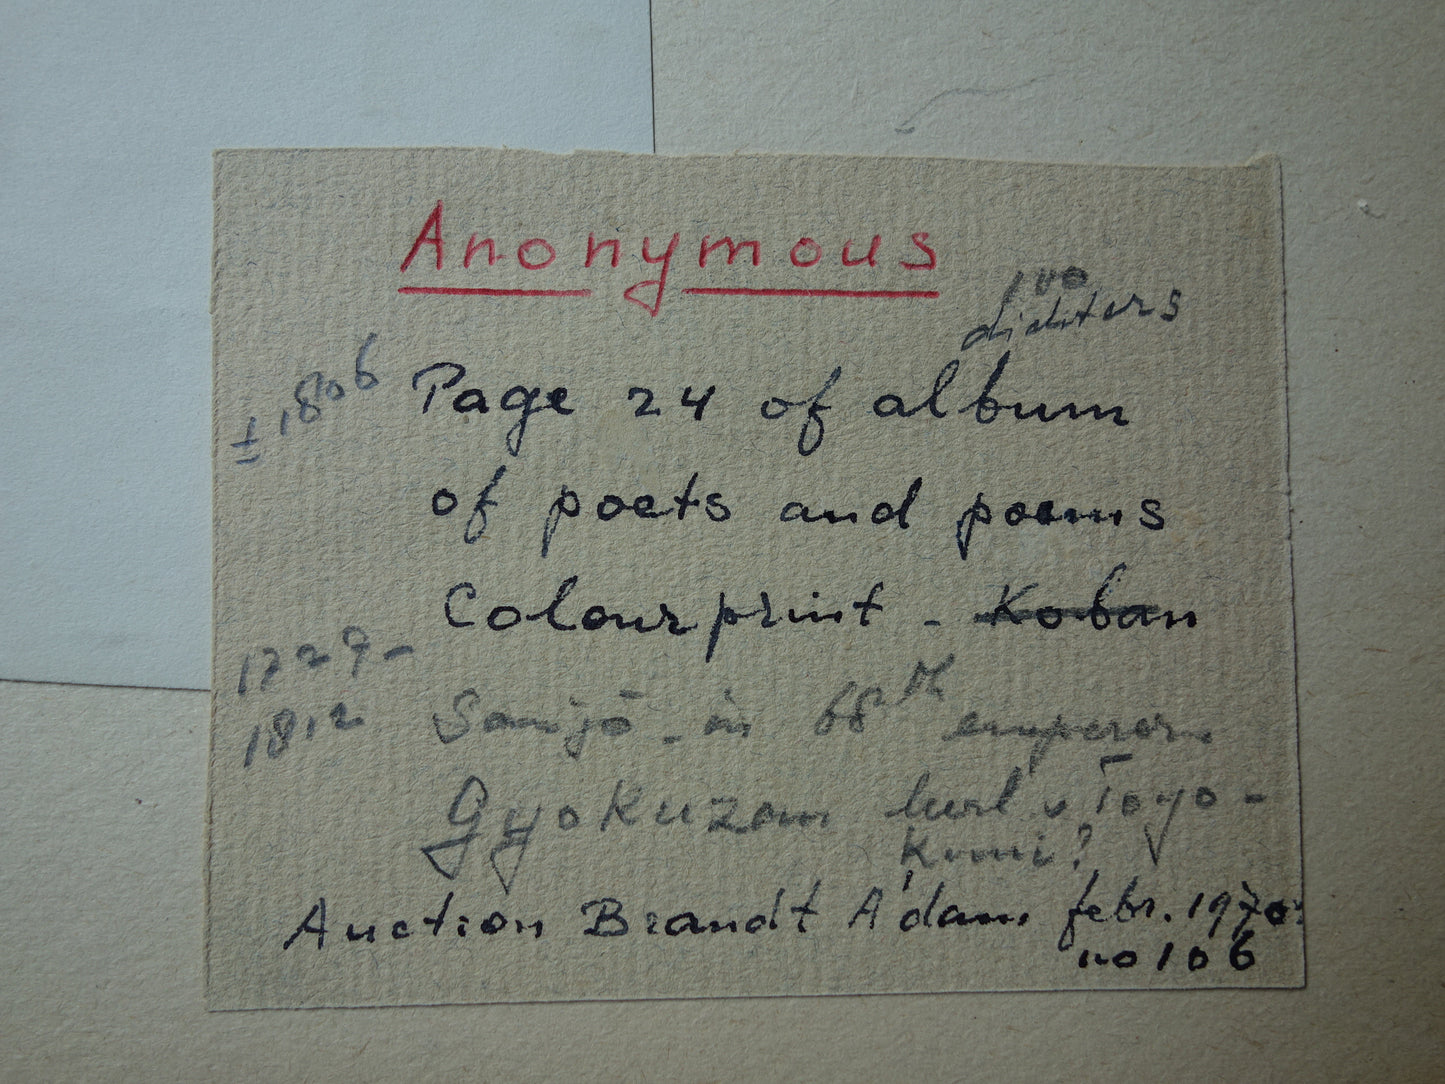 Anonymous
100
dichters
± 1806
Page 24 of album
of poets and poems
Colourprint - Koban
1729-
1812
Sanijō - in 68th emperor
Gyokuzan leerl v Toyo-
kuni?
Auction Brandt A'dam febr. 1970
no 106